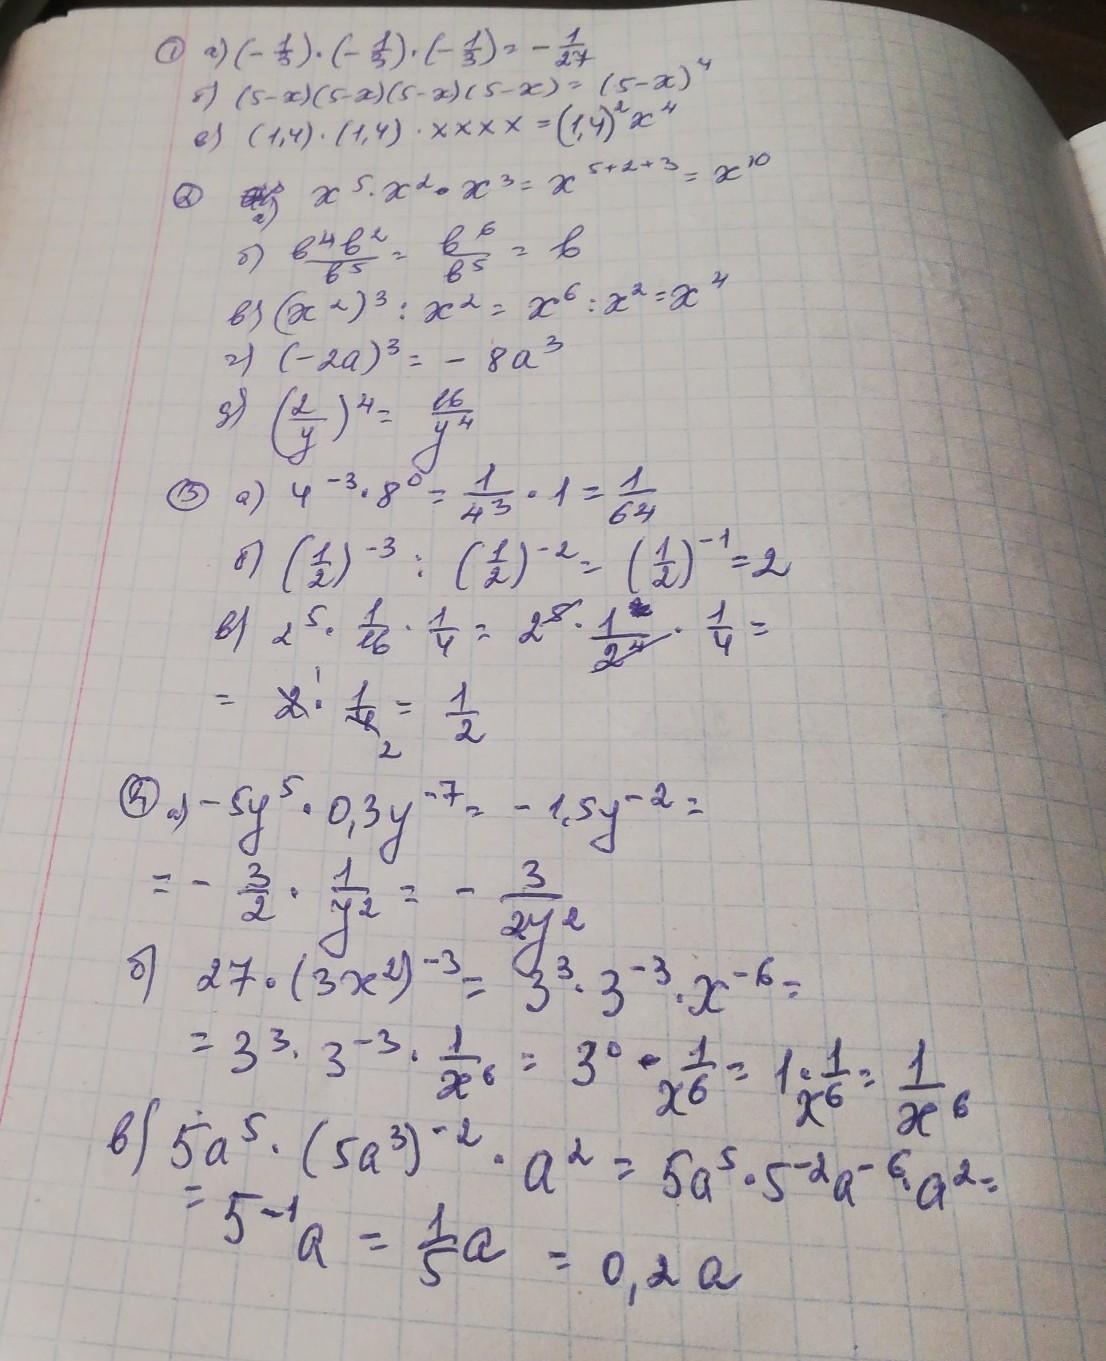 ① а) (-1/3)·(-1/3)·(-1/3) = -1/27
б) (5-x)(5-x)(5-x)(5-x) = (5-x)⁴
в) (1,4)·(1,4)·xxxx = (1,4)²x⁴
② а) x⁵·x²·x³ = x⁵⁺²⁺³ = x¹⁰
б) b⁴b²/b⁵ = b⁶/b⁵ = b
в) (x²)³ : x² = x⁶ : x² = x⁴
г) (-2a)³ = - 8a³
д) (2/y)⁴ = 16/y⁴
③ а) 4⁻³·8⁰ = 1/4³ · 1 = 1/64
б) (1/2)⁻³ : (1/2)⁻² = (1/2)⁻¹ = 2
в) 2⁵ · 1/16 · 1/4 = 2⁵ · 1/2⁴ · 1/4 =
= 2 · 1/4 = 1/2
④ а) -5y⁵ · 0,3y⁻⁷ = -1,5y⁻² =
= - 3/2 · 1/y² = - 3/2y²
б) 27·(3x²)⁻³ = 3³·3⁻³·x⁻⁶ =
= 3³·3⁻³·1/x⁶ = 3⁰·1/x⁶ = 1·1/x⁶ = 1/x⁶
в) 5a⁵·(5a³)⁻²·a² = 5a⁵·5⁻²a⁻⁶·a² =
= 5⁻¹a = 1/5 a = 0,2a